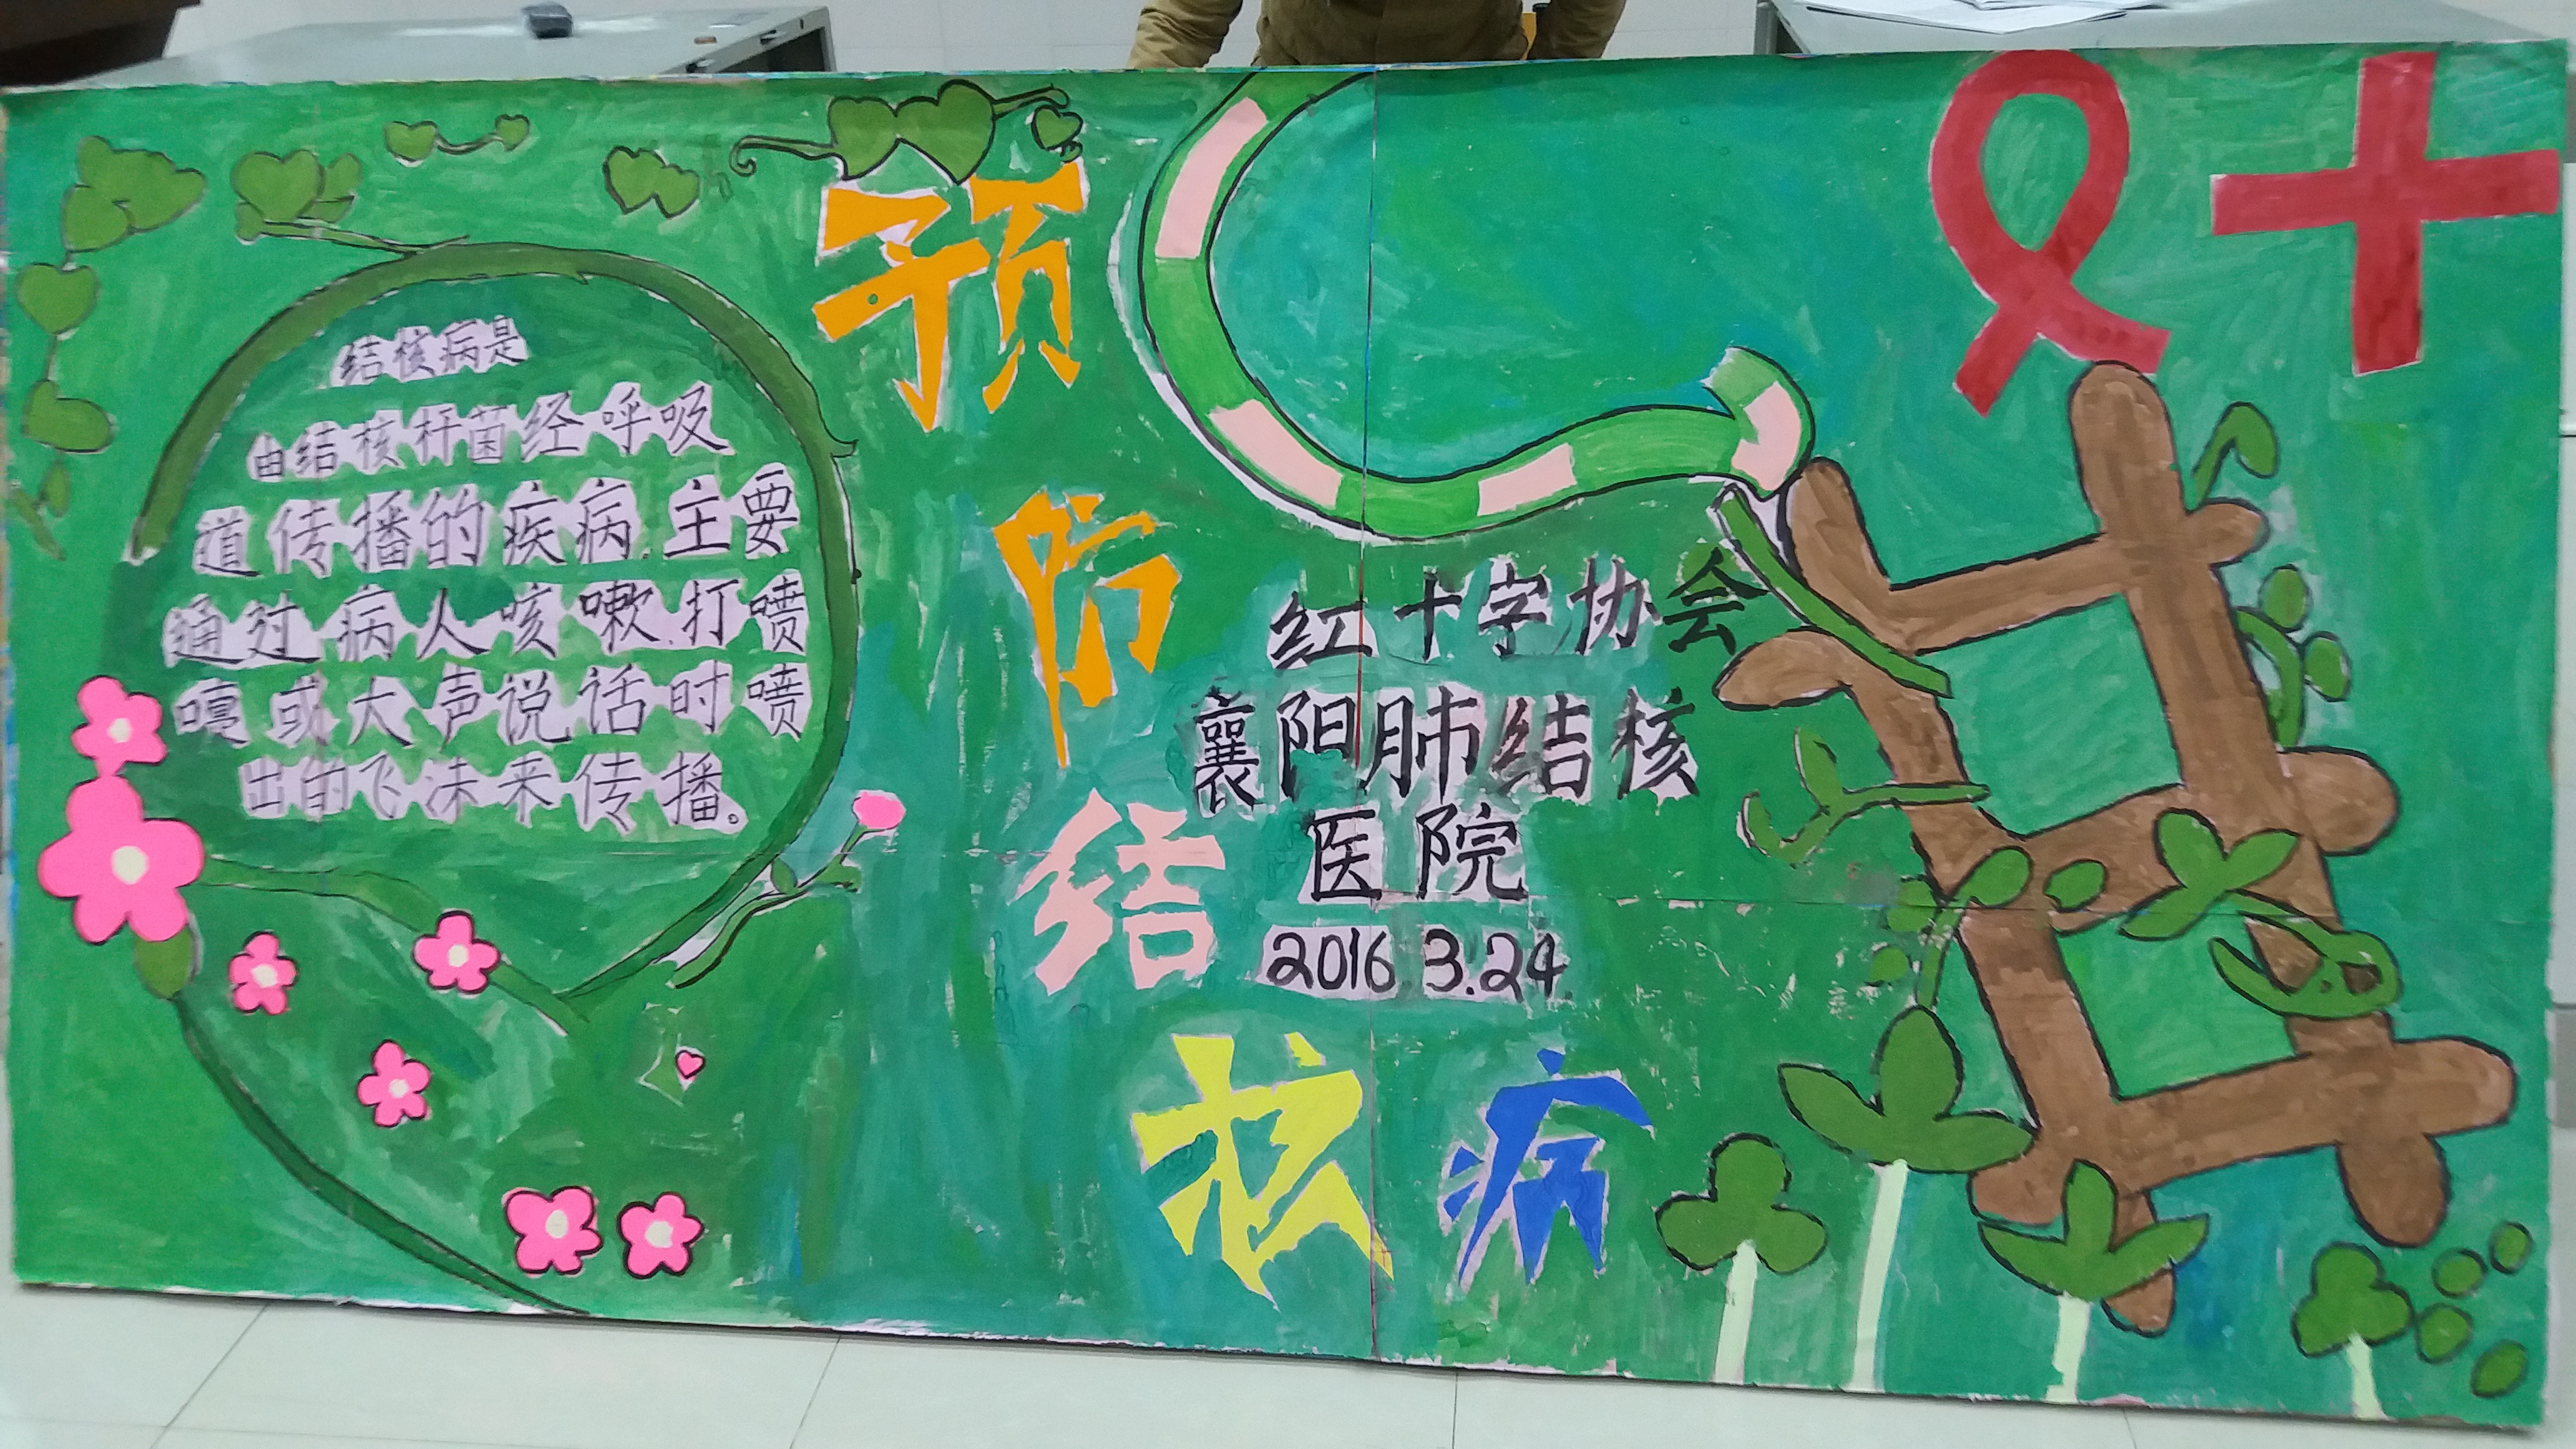 结核病是
由结核杆菌经呼吸
道传播的疾病.主要
通过病人咳嗽.打喷
嚏或大声说话时喷
出的飞沫来传播。
预
防
结
核
病
红十字协会
襄阳肺结核
医院
2016.3.24